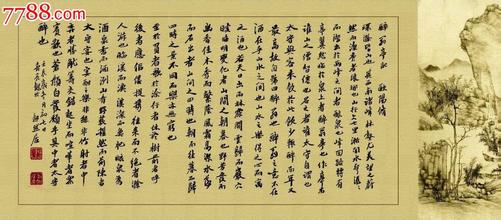 醉翁亭記 歐陽脩
環滁皆山也其西南諸峰林壑尤美望之蔚
然而深秀者瑯琊也山行六七里漸聞水聲潺潺
而瀉出于兩峰之間者釀泉也峰回路轉有
亭翼然臨于泉上者醉翁亭也作亭者
誰山之僧智仙也名之者誰太守自謂也
太守與客來飲於此飲少輒醉而年又
最高故自號曰醉翁也醉翁之意不在
酒在乎山水之間也山水之樂得之心而寓
之酒也若夫日出而林霏開雲歸而巖穴
暝晦明變化者山間之朝暮也野芳發而
幽香佳木秀而繁陰風霜高潔水落
而石出者山間之四時也朝而往暮而歸
四時之景不同而樂亦無窮也
至於負者歌於途行者休於樹前者呼
後者應傴僂提攜往來而不絕者滁
人游也臨溪而漁溪深而魚肥釀泉為
酒泉香而酒洌山肴野蔌雜然而前陳者
太守宴也宴酣之樂非絲非竹射者中
弈者勝觥籌交錯起坐而喧嘩者眾
賓歡也蒼顏白髮頹然乎其間者太守
醉也
7788.com